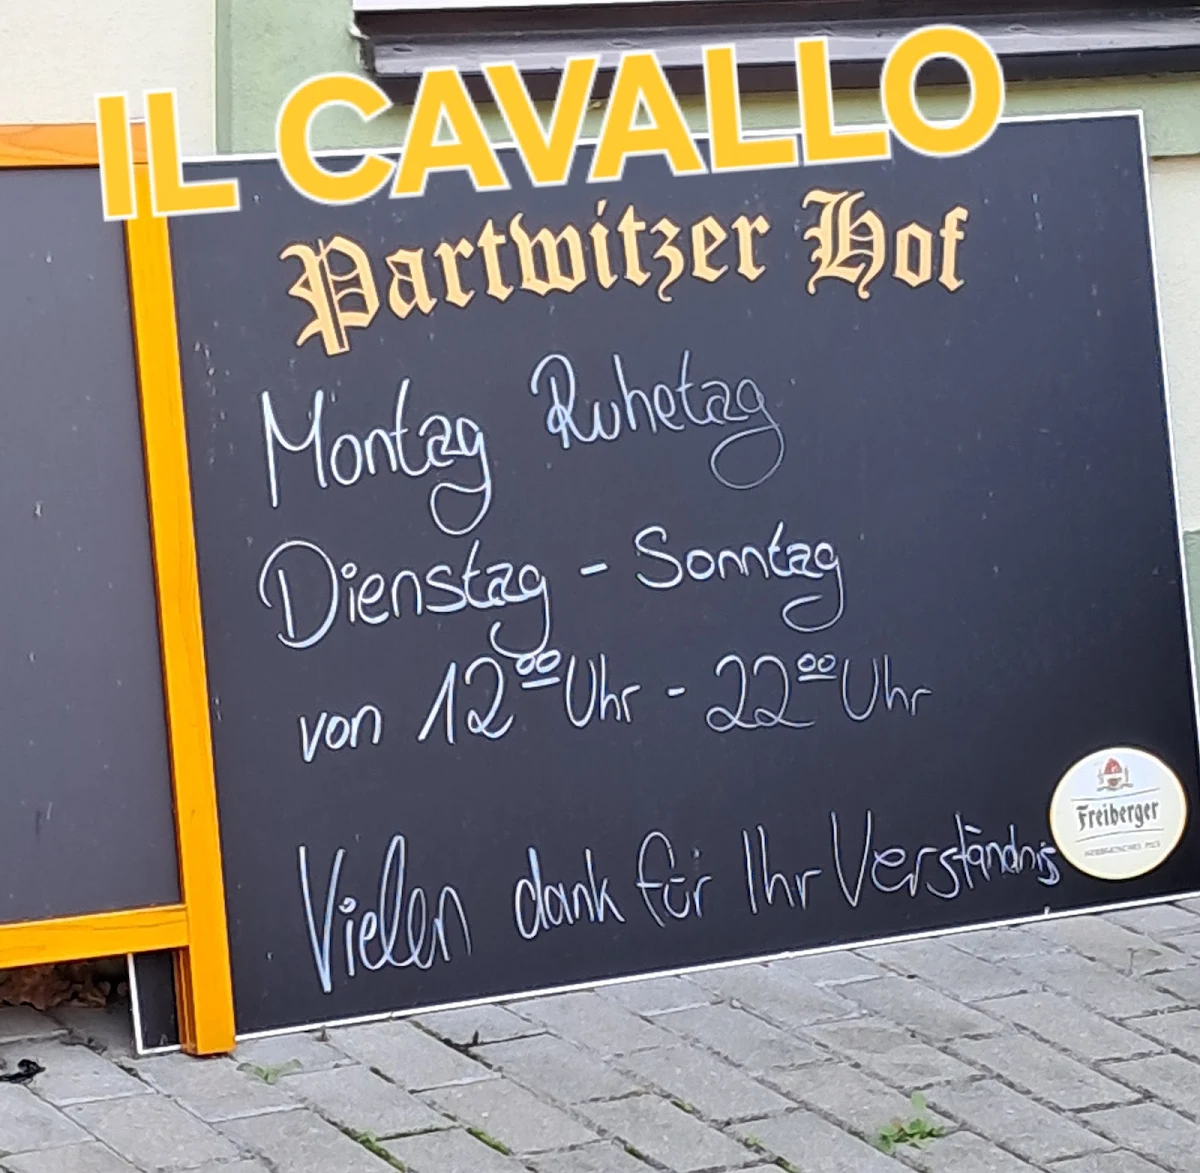 IL CAVALLO
Partwitzer Hof
Montag Ruhetag
Dienstag - Sonntag
von 12⁰⁰ Uhr - 22⁰⁰ Uhr
Vielen dank für Ihr Verständnis
Freiberger